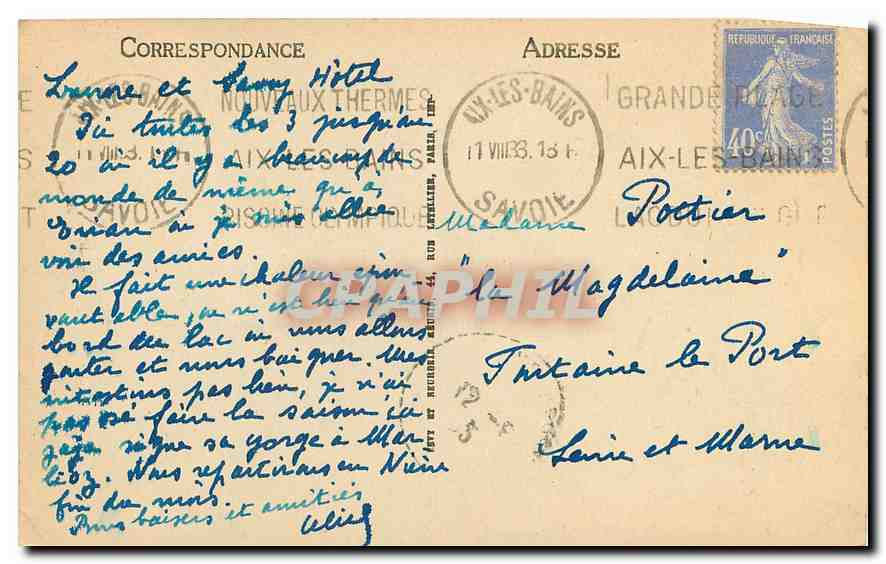 CORRESPONDANCE
ADRESSE
REPUBLIQUE FRANÇAISE
40c
POSTES
et Savoy Hôtel
Ici toutes les 3 jusqu'au
20 où il y a beaucoup de
monde de même qu'à
Evian où je suis allée
voir des amies.
Il fait une chaleur épou
vantable, on n'est bien qu'au
bord du lac où nous allons
goûter et nous baigner. Mes
intestins pas bien, je n'ai
pas osé faire la saison ici
soigne sa gorge à Mar
lioz. Nous repartirons en
fin du mois.
Bons baisers et amitiés
AIX-LES-BAINS
11 VIII 33. 13 H
SAVOIE
NOUVEAUX THERMES
AIX-LES-BAINS
PISCINE OLYMPIQUE
AIX-LES-BAINS
11 VIII 33. 13 H
SAVOIE
GRANDE PLAGE
AIX-LES-BAINS
LAC DU
Madame Pottier
"la Magdelaine"
Fontaine le Port
Seine et Marne
LÉVY ET NEURDEIN RÉUNIS 44, RUE LETELLIER, PARIS, IMP.
12 - 8
CPAPHIL